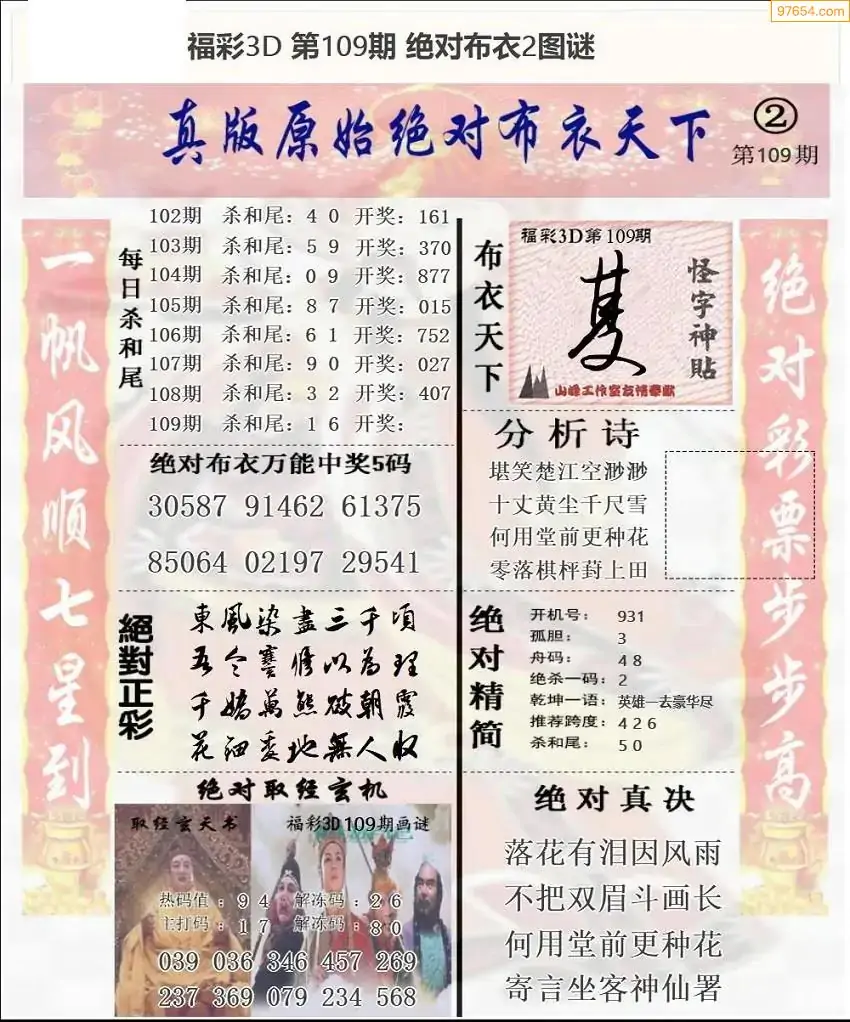 97654.com
福彩3D 第109期 绝对布衣2图谜
真版原始绝对布衣天下
②
第109期
一帆风顺七星到
每日杀和尾
102期 杀和尾：4 0 开奖：161
103期 杀和尾：5 9 开奖：370
104期 杀和尾：0 9 开奖：877
105期 杀和尾：8 7 开奖：015
106期 杀和尾：6 1 开奖：752
107期 杀和尾：9 0 开奖：027
108期 杀和尾：3 2 开奖：407
109期 杀和尾：1 6 开奖：
绝对布衣万能中奖5码
30587 91462 61375
85064 02197 29541
絕對正彩
東風染盡三千頃
千嬌萬態破朝霞
花細委地無人收
绝对取经玄机
取经玄天书
福彩3D109期画谜
热码值：9 4 解冻码：2 6
主打码：1 7 解冻码：8 0
039 036 346 457 269
237 369 079 234 568
布衣天下
福彩3D第109期
怪字神贴
山峰工作室友情奉献
分析诗
堪笑楚江空渺渺
十丈黄尘千尺雪
何用堂前更种花
零落棋枰葑上田
绝对精简
开机号：931
孤胆：3
舟码：4 8
绝杀一码：2
乾坤一语：英雄一去豪华尽
推荐跨度：4 2 6
杀和尾：5 0
绝对真决
落花有泪因风雨
不把双眉斗画长
何用堂前更种花
寄言坐客神仙署
绝对彩票步步高